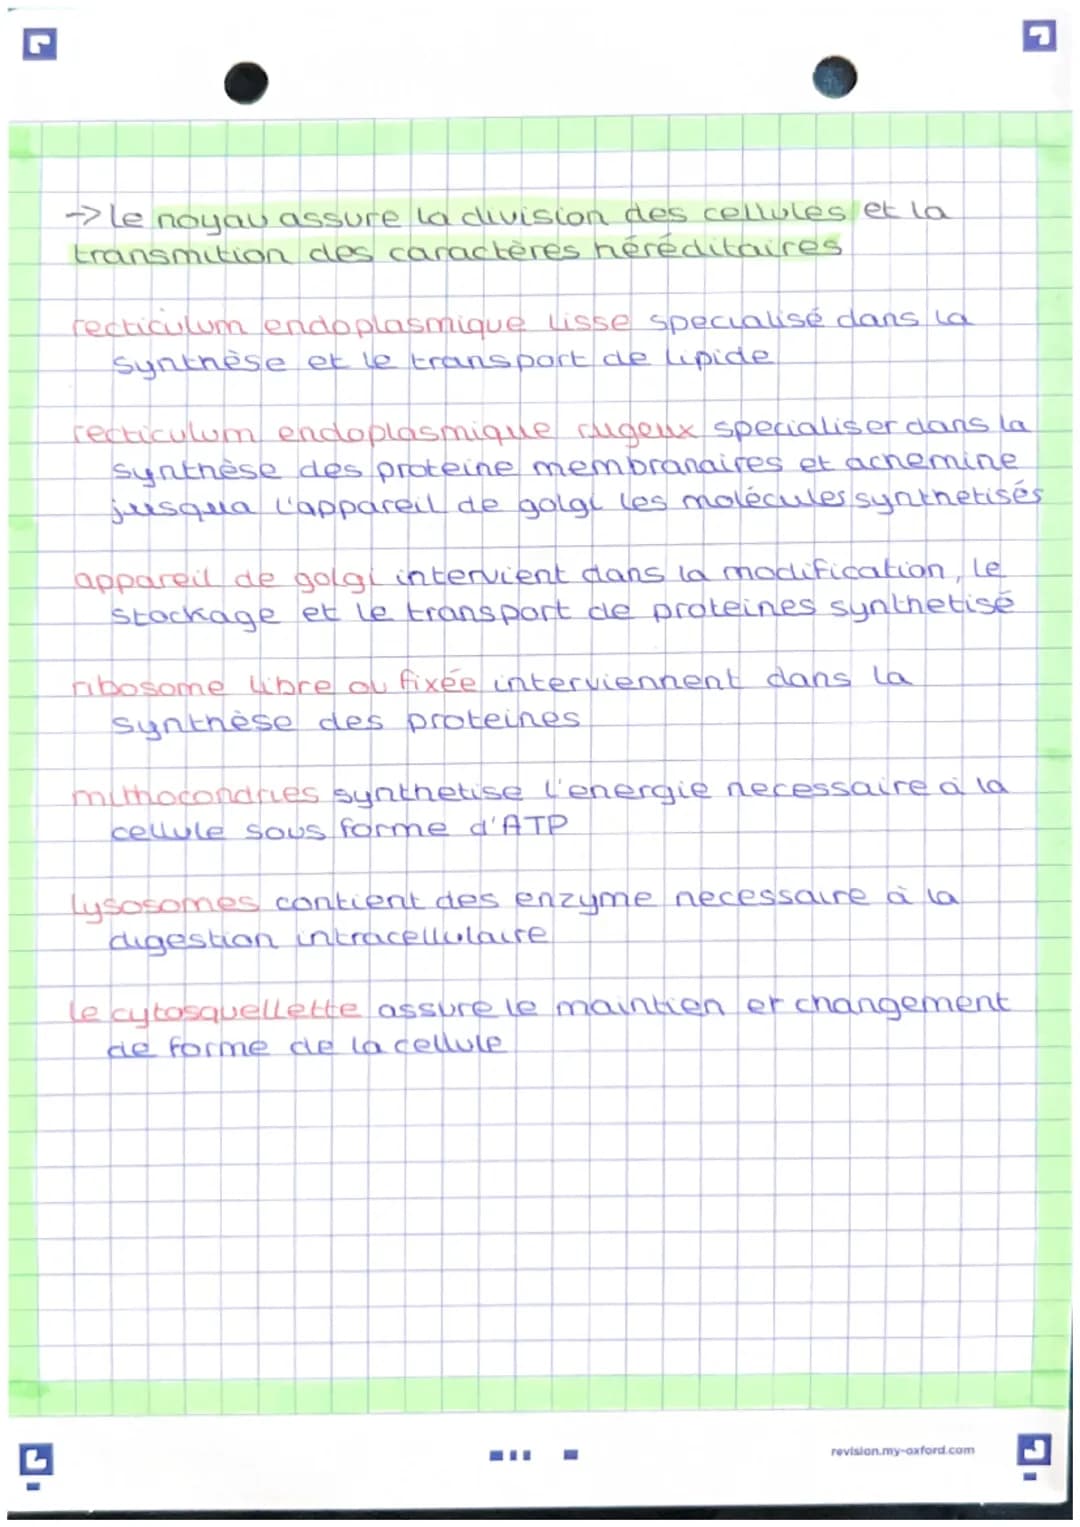 → le noyau assure la division des cellules et la
transmition des caractères héréditaires
recticulum endoplasmique lisse specialisé dans la
synthèse et le transport de lipide
recticulum endoplasmique rugeux specialiser dans la
synthèse des proteine membranaires et achemine
jusqua l'appareil de golgi les molécules synthetisés
appareil de golgi intervient dans la modification, le
stockage et le transport de proteines synthetisé
ribosome libre ou fixée interviennent dans la
synthèse des proteines
mithocondries synthetise l'energie necessaire à la
cellule sous forme d'ATP
lysosomes contient des enzyme necessaire à la
digestion intracellulaire
le cytosquellette assure le maintien et changement
de forme de la cellule
revision.my-oxford.com